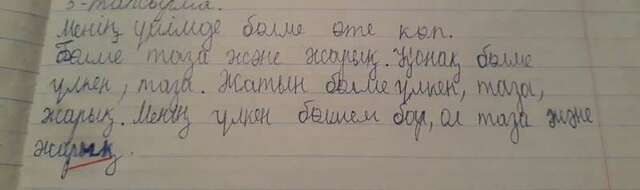 3-тапсырма.
Менің үйімде бөлме өте көп.
Бөлме таза және жарық. Қонақ бөлме
үлкен, таза. Жатын бөлме үлкен, таза,
жарық. Менің үлкен бөлмем бар, ол таза және
жарық.